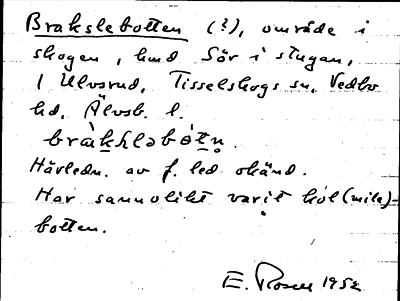 Brakslebotten (?), område i
skogen, hmd Sör i stugan,
1 Ulvsrud, Tisselskogs sn, Vedbo
hd, Älvsb. l.
Härledn. av f. led okänd.
Har sannolikt varit kol(mila)-
botten.
E. Rosell 1952